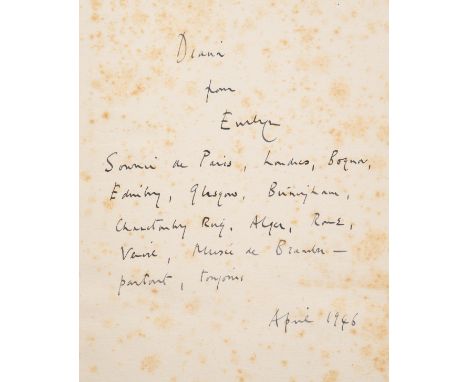 Diana
from
Evelyn
Souvenir de Paris, Londres, Bognor,
Edinbrg, Glasgow, Birmingham,
Chanctonbury Ring, Alger, Rome,
Venise, Musée de Bramber —
partout, toujours
April 1946